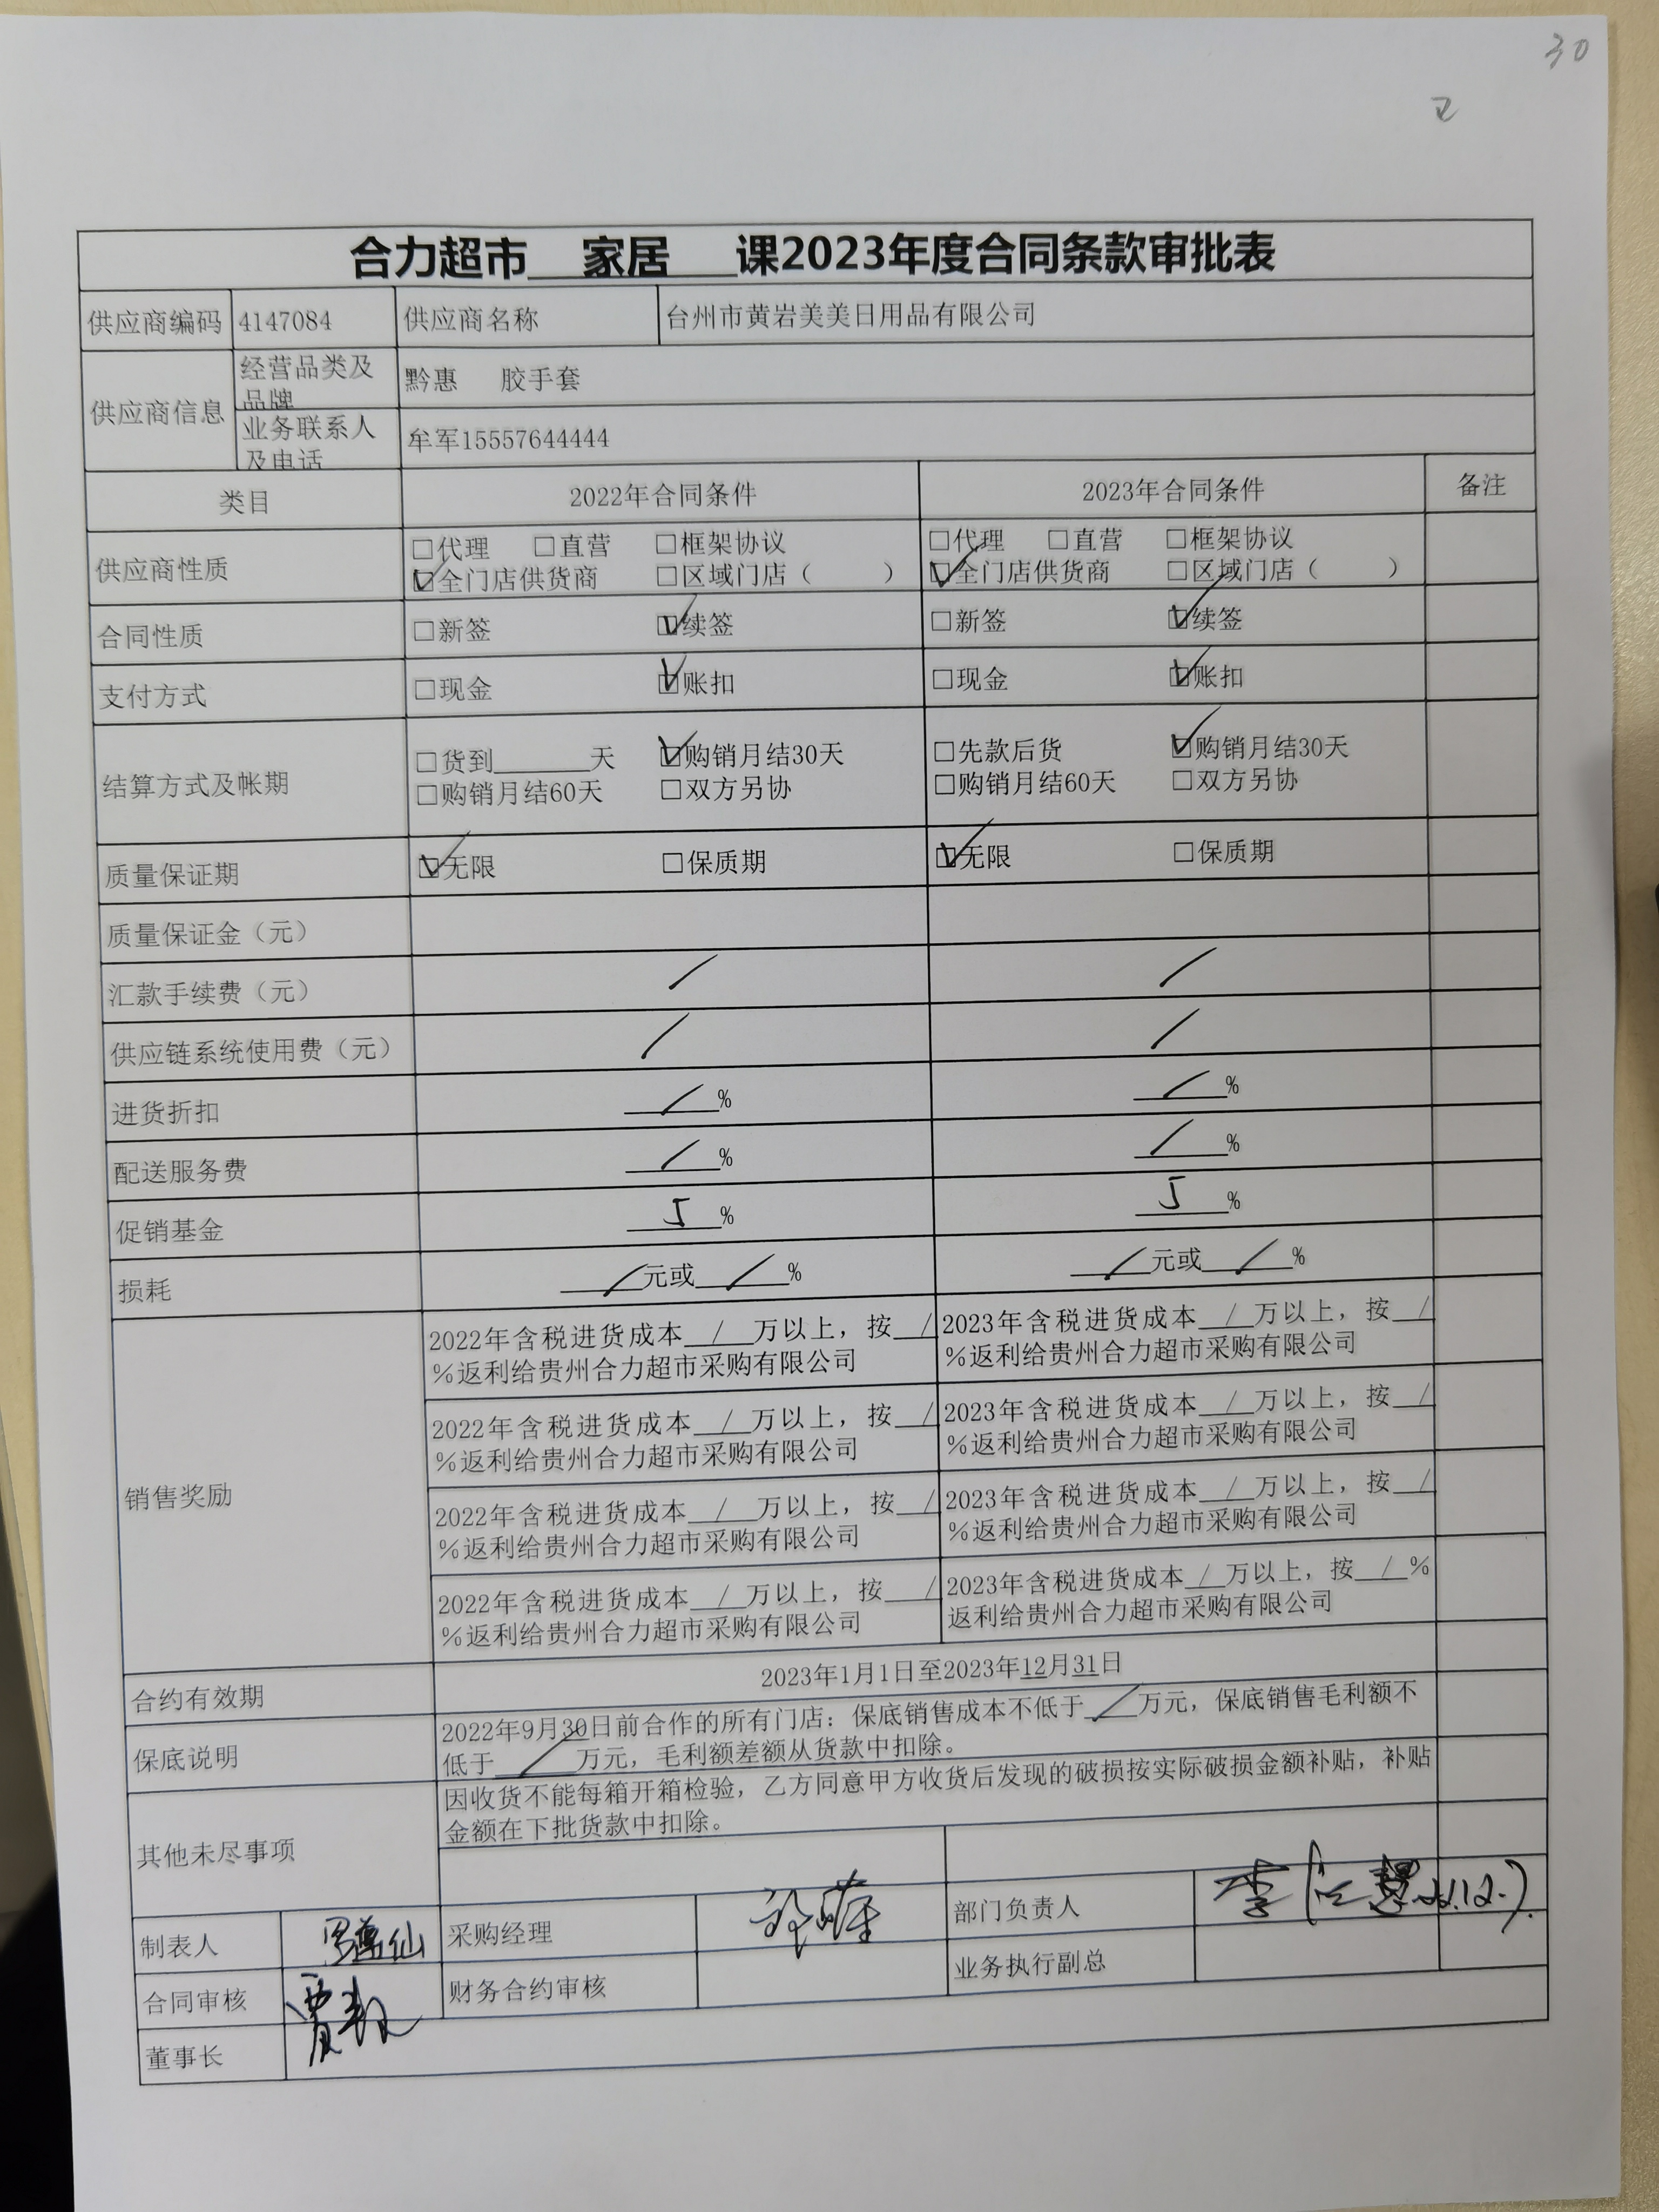 30
合力超市 家居 课2023年度合同条款审批表
供应商编码 4147084 供应商名称 台州市黄岩美美日用品有限公司
供应商信息
经营品类及品牌 黔惠 胶手套
业务联系人及电话 牟军15557644444
类目 2022年合同条件 2023年合同条件 备注
供应商性质
□代理 □直营 □框架协议 □代理 □直营 □框架协议
☑全门店供货商 □区域门店( ) ☑全门店供货商 □区域门店( )
合同性质 □新签 ☑续签 □新签 ☑续签
支付方式 □现金 ☑账扣 □现金 ☑账扣
结算方式及帐期
□货到____天 ☑购销月结30天 □先款后货 ☑购销月结30天
□购销月结60天 □双方另协 □购销月结60天 □双方另协
质量保证期 ☑无限 □保质期 ☑无限 □保质期
质量保证金(元)
汇款手续费(元) / /
供应链系统使用费(元) / /
进货折扣 / % / %
配送服务费 / % / %
促销基金 5 % 5 %
损耗 / 元或 / % / 元或 / %
销售奖励
2022年含税进货成本 / 万以上，按 / %返利给贵州合力超市采购有限公司
2023年含税进货成本 / 万以上，按 / %返利给贵州合力超市采购有限公司
2022年含税进货成本 / 万以上，按 / %返利给贵州合力超市采购有限公司
2023年含税进货成本 / 万以上，按 / %返利给贵州合力超市采购有限公司
2022年含税进货成本 / 万以上，按 / %返利给贵州合力超市采购有限公司
2023年含税进货成本 / 万以上，按 / %返利给贵州合力超市采购有限公司
2022年含税进货成本 / 万以上，按 / %返利给贵州合力超市采购有限公司
2023年含税进货成本 / 万以上，按 / %返利给贵州合力超市采购有限公司
合约有效期 2023年1月1日至2023年12月31日
保底说明
2022年9月30日前合作的所有门店：保底销售成本不低于 / 万元，保底销售毛利额不
低于 / 万元，毛利额差额从货款中扣除。
其他未尽事项
因收货不能每箱开箱检验，乙方同意甲方收货后发现的破损按实际破损金额补贴，补贴
金额在下批货款中扣除。
制表人 采购经理 部门负责人
合同审核 财务合约审核 业务执行副总
董事长